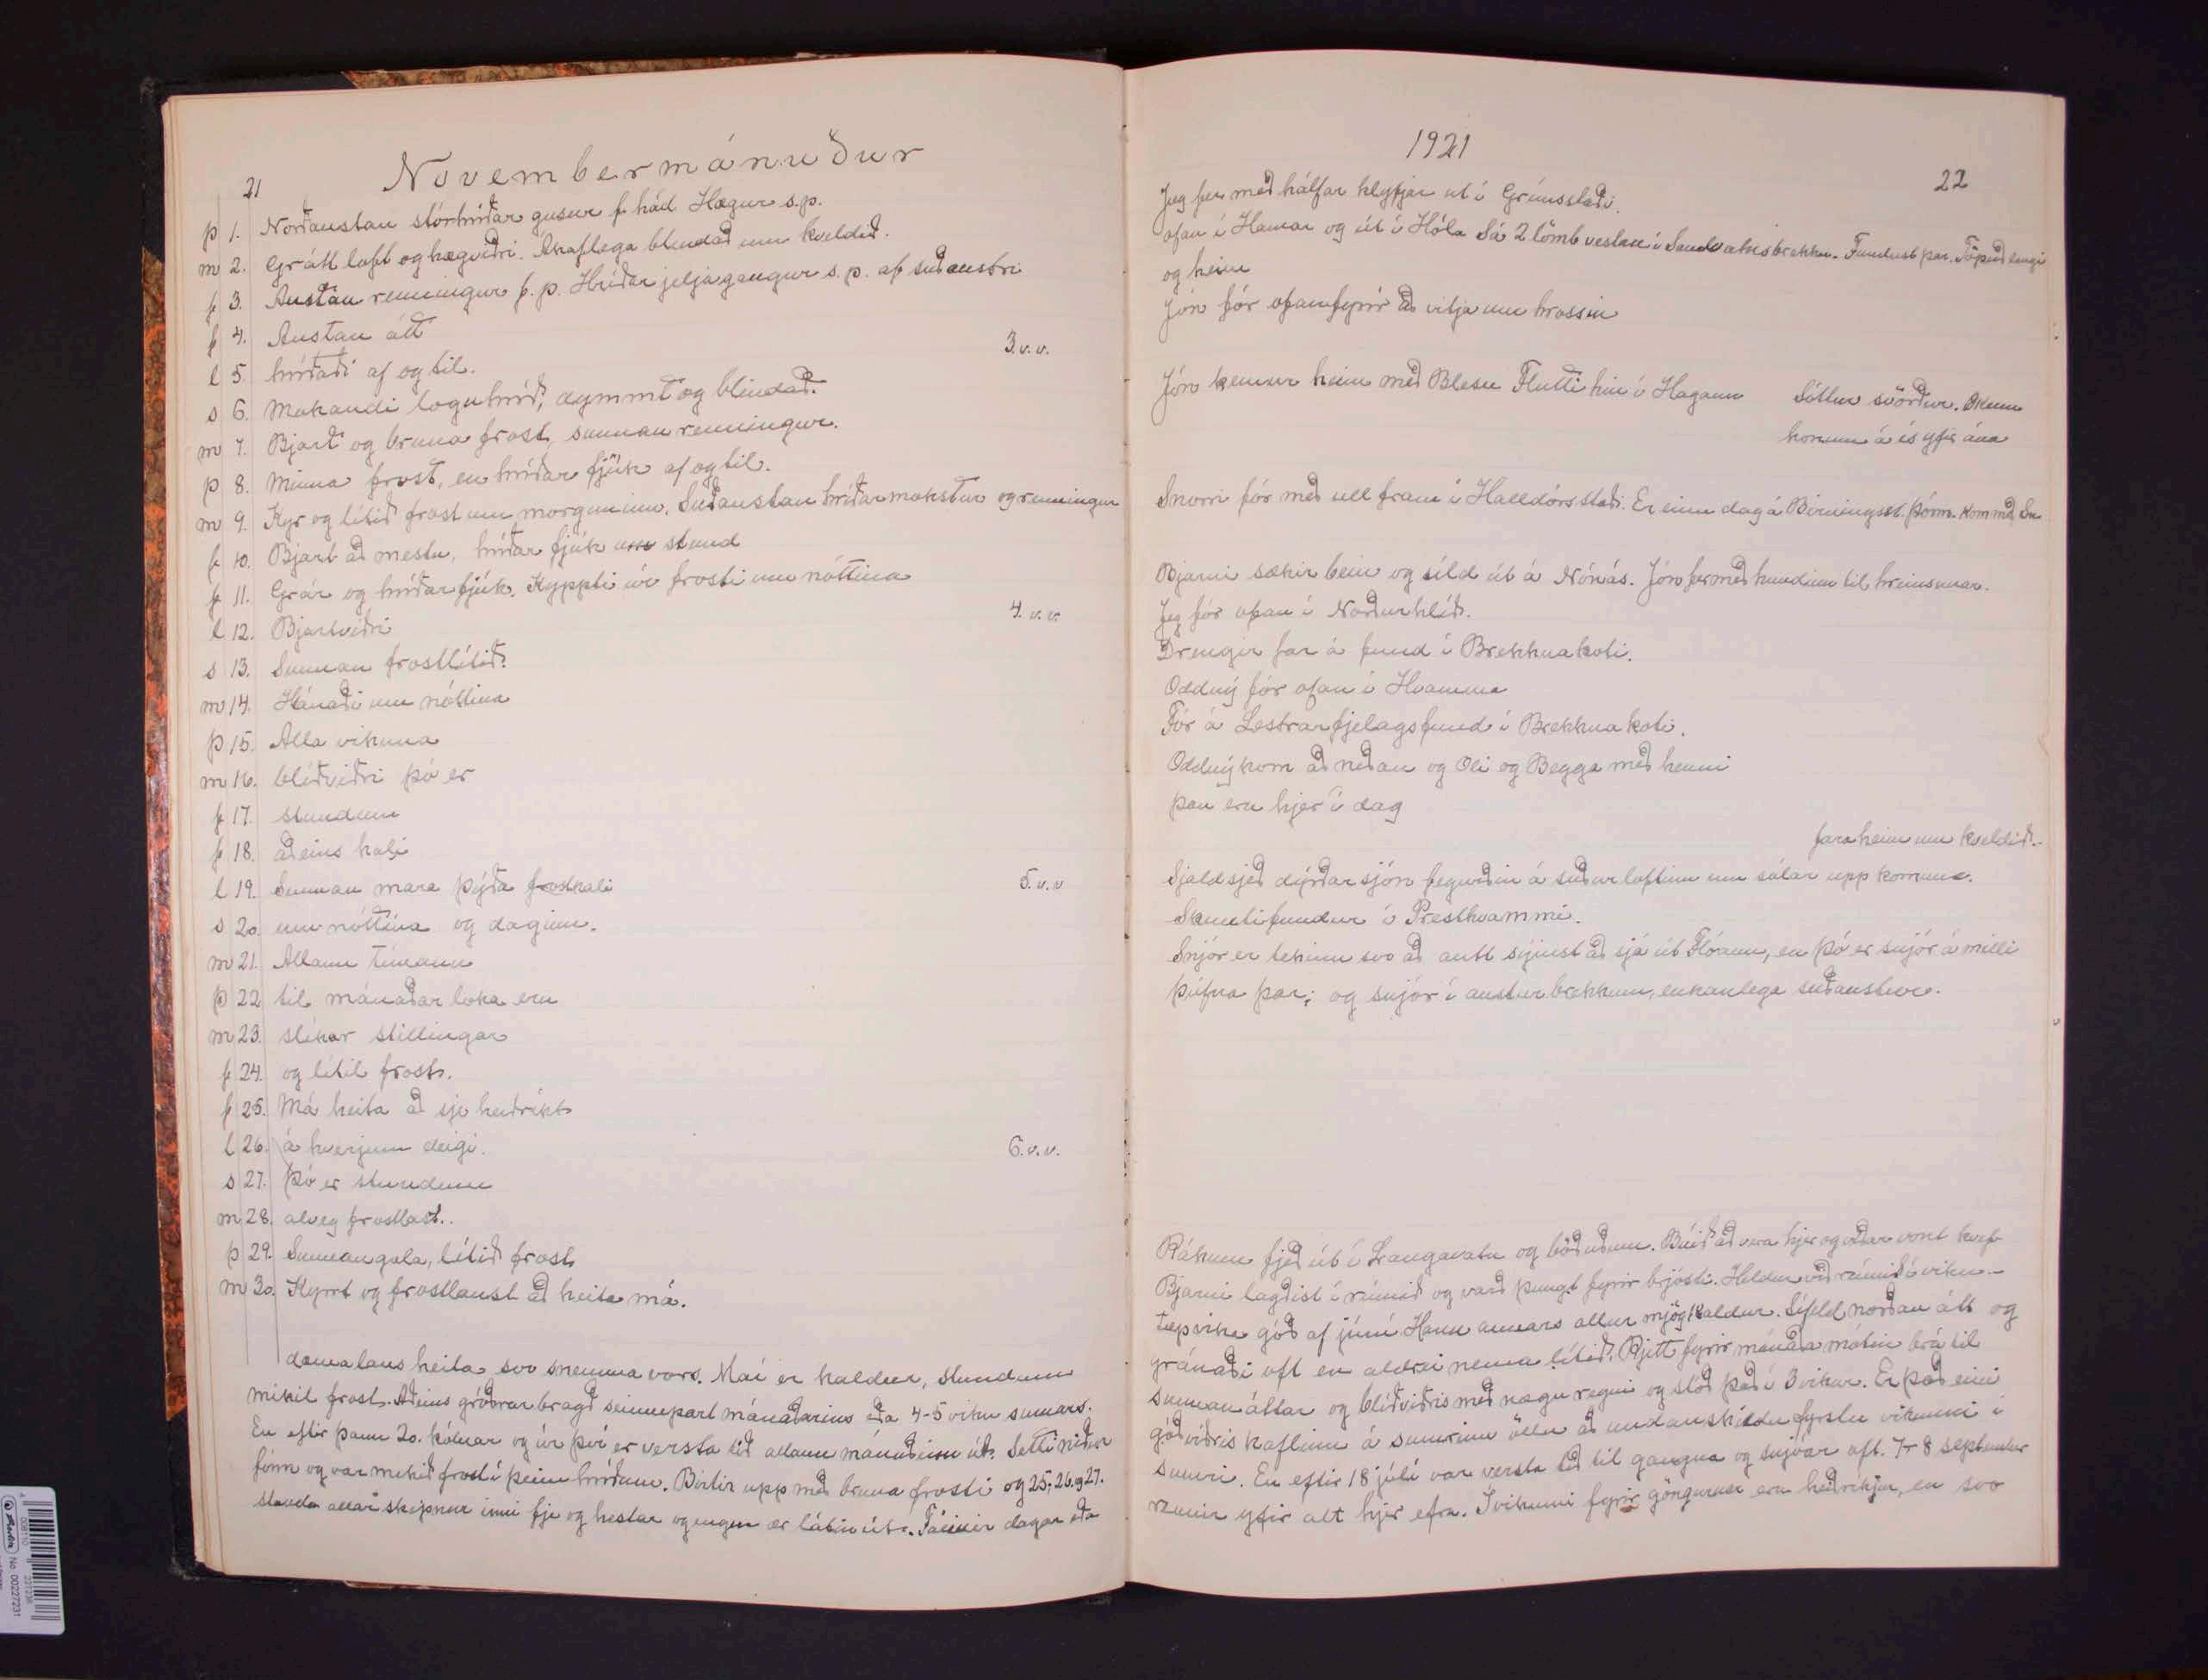 21
Novembermánuður
þ 1. Norðaustan stórhríðar gusur f. hád Hægur s.p.
m 2. Grátt loft og hægviðri. Ákaflega blindað um kveldið.
f 3. Austan renningur f.p. Hríðar jeljagangur s.p. af suðaustri
f 4. Austan átt
l 5. hríðaði af og til. 3.v.v.
s 6. Mokandi loguhríð, dymmt og blindað.
m 7. Bjart og bruna frost, sunnan renningur.
þ 8. Minna frost, en hríðar fjúk af og til.
m 9. Kyr og lítið frost um morguninn. Suðaustan hríðarmokstur og renningur
f 10. Bjart að mestu, hríðar fjúk um stund
f 11. Grár og hríðarfjúk. Kyppti úr frosti um nóttina
l 12. Bjartviðri 4.v.v.
s 13. Sunnan frostlítið.
m 14. Hánaði um nóttina
þ 15. Alla vikuna
m 16. blíðviðri þó er
f 17. stundum
f 18. aðeins kali
l 19. Sunnan mara þýða frostkali 5.v.v
s 20. um nóttina og daginn.
m 21. Allann tímann
þ 22 til mánaðar loka eru
m 23. slíkar stillingar
f 24. og lítil frost.
f 25. Má heita að sje heiðríkt
l 26. á hverjum deigi. 6.v.v.
s 27. Þó er stundum
m 28. alveg frostlast..
þ 29. Sunnangola, lítið frost
m 30. Kyrrt og frostlaust að heita má.
dæmalaus heita svo snemma vors. Maí er kaldur, stundum
mikil frost. Aðeins gróðrarbragð seinnepart mánaðarins eða 4-5 viku sumars.
En eftir þann 20. kólnar og úr því er versta tíð allann mánuðinn út. Setti niður
fönn og var mikið frost í þeim hríðum. Birtir upp með bruna frosti og 25, 26. og 27.
standa allar skepnur inni fje og hestar og engin er látin út. Fáeinir dagar eða
1921
22
Jeg fer með hálfar klyfjar út í Grímsstaði.
ofan í Hamar og út í Hóla Sá 2 lömb vestan í Sandvatnsbrekku. Fundust þar. Töpuð lengi
og heim
Jón fór ofanfyrir að vitja um hrossin
Jón kemur heim með Blesu Flutti hin í Hagann Sóttur svörður. Ókum
honum á ís yfir ána
Snorri fór með ull fram í Halldórsstaði. Er einn dag á Birningsst. Þórm. kom með Sn
Bjarni sækir bein og síld út á Nónás. Jón fer með hundinn til hreinsunar.
Jeg fór ofan í Norðurhlíð.
Drengir far á fund í Brekknakoti.
Oddný fór ofan í Hvamma
Fór á Lestrarfjelagsfund í Brekknakoti.
Oddný kom að neðan og Oli og Begga með henni
þau eru hjer í dag
fara heim um kveldið.
Sjaldsjeð dýrðarsjón fegurðin á suðurloftinu um sólar uppkomuna.
Skemtifundur í Presthvammi.
Snjór er tekinn svo að autt sýnist að sjá út Flóann, en þó er snjór á milli
þúfna þar; og snjór í austurbrekkum, einkanlega suðaustur.
Rákum fjeð út í Langavatn og böðuðum. Búið að vera hjer og víðar vont kvef
Bjarni lagðist í rúmið og varð þungt fyrir brjósti. Heldur við rúmið í viku.
tæp vika góð af júní Hann annars allur mjög kaldur. Sífeld norðan átt og
gránaði oft en aldrei nema lítið. Rjett fyrir mánaðamótin brá til
sunnanáttar og blíðviðris með nægu regni og stóð það í 3 vikur. Er það eini
góðviðris kaflinn á sumrinu öllu að undanskildu fyrstu vikunni í
sumri. En eftir 18 júlí var versta tíð til gangna og snjóar oft. 7-8 september
rennir yfir alt hjer efra. Í vikunni fyrir göngurnar eru heiðríkjur, en svo